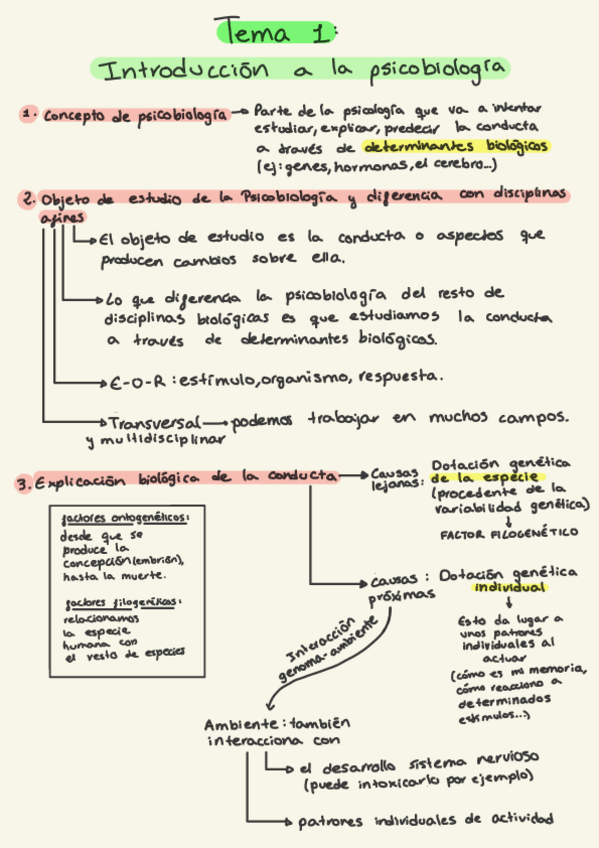 Tema 1:
Introducción a la psicobiología
1. Concepto de psicobiología → Parte de la psicología que va a intentar
estudiar, explicar, predecir la conducta
a través de determinantes biológicos
(ej: genes, hormonas, el cerebro...)
2. Objeto de estudio de la Psicobiología y diferencia con disciplinas
afines
El objeto de estudio es la conducta o aspectos que
producen cambios sobre ella.
Lo que diferencia la psicobiología del resto de
disciplinas biológicas es que estudiamos la conducta
a través de determinantes biológicos.
E-O-R : estímulo, organismo, respuesta.
Transversal → podemos trabajar en muchos campos.
y multidisciplinar
3. Explicación biológica de la conducta → Causas
lejanas:
Dotación genética
de la especie
(procedente de la
variabilidad genética)
↓
FACTOR FILOGENÉTICO
factores ontogenéticos:
desde que se
produce la
concepción (embrión),
hasta la muerte.
factores filogenéticos:
relacionamos
la especie
humana con
el resto de especies
causas :
próximas
Dotación genética
individual
↓
Esto da lugar a
unos patrones
individuales al
actuar
(cómo es mi memoria,
cómo reacciono a
determinados
estímulos...)
Interacción
genoma-ambiente
Ambiente: también
interacciona con
el desarrollo sistema nervioso
(puede intoxicarlo por ejemplo)
patrones individuales de actividad